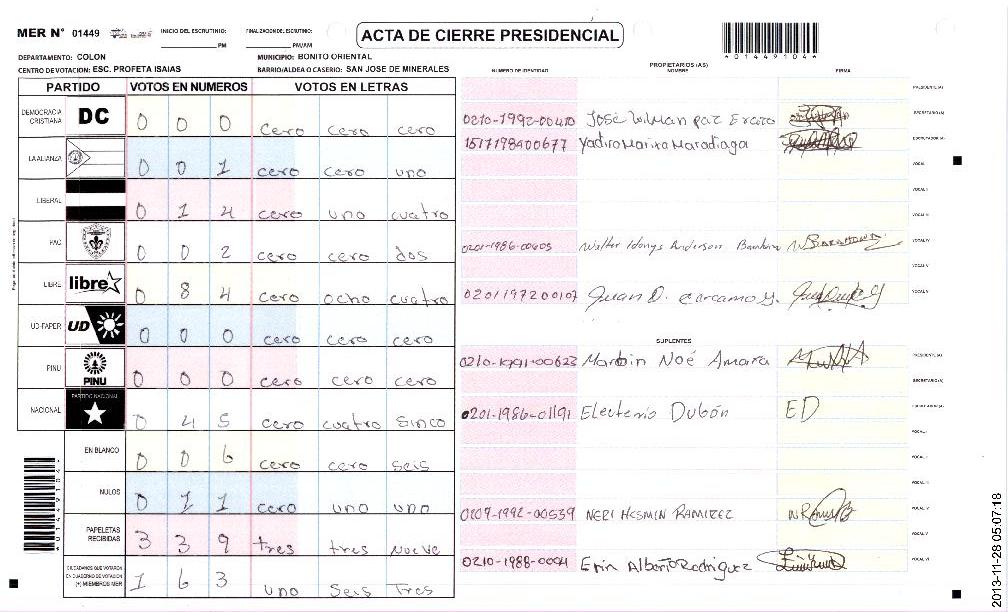 MER N° 01449 INICIO DEL ESCRUTINIO: ________PM FINALIZACION DEL ESCRUTINIO: ________PM/AM
ACTA DE CIERRE PRESIDENCIAL
*01449104*
DEPARTAMENTO: COLON MUNICIPIO: BONITO ORIENTAL
CENTRO DE VOTACION: ESC. PROFETA ISAIAS BARRIO/ALDEA O CASERIO: SAN JOSE DE MINERALES
PARTIDO VOTOS EN NUMEROS VOTOS EN LETRAS
DEMOCRACIA CRISTIANA DC 0 0 0 cero cero cero
LA ALIANZA 0 0 1 cero cero uno
LIBERAL 0 1 4 cero uno cuatro
PAC 0 0 2 cero cero dos
LIBRE libre 0 8 4 cero ocho cuatro
UD-FAPER UD 0 0 0 cero cero cero
PINU PINU 0 0 0 cero cero cero
NACIONAL PARTIDO NACIONAL 0 4 5 cero cuatro sinco
EN BLANCO 0 0 6 cero cero seis
NULOS 0 1 1 cero uno uno
PAPELETAS RECIBIDAS 3 3 9 tres tres nueve
CIUDADANOS QUE VOTARON EN CUADERNO DE VOTACION (+) MIEMBROS MER 1 6 3 uno seis tres
*01449104*
PROPIETARIOS (AS)
NUMERO DE IDENTIDAD NOMBRE FIRMA
PRESIDENTE (A)
0210-1992-00410 José Wilman paz SECRETARIO (A)
1517198400677 Yadira Marixa Maradiaga ESCRUTADOR (A)
VOCAL I
VOCAL II
VOCAL III
0201-1986-00605 Walter Idonys Anderson VOCAL IV
VOCAL V
0201197200107 Juan D. carcamo y. VOCAL VI
SUPLENTES
0210-1991-00623 Marbin Noé Amara PRESIDENTE (A)
SECRETARIO (A)
0201-1986-01191 Eleuterio Dubón ED ESCRUTADOR (A)
VOCAL I
VOCAL II
VOCAL III
0209-1992-00539 NERI HESMIN RAMIREZ VOCAL IV
VOCAL V
0210-1988-0004 Erin Alberto Rodriguez VOCAL VI
2013-11-28 05:07:18